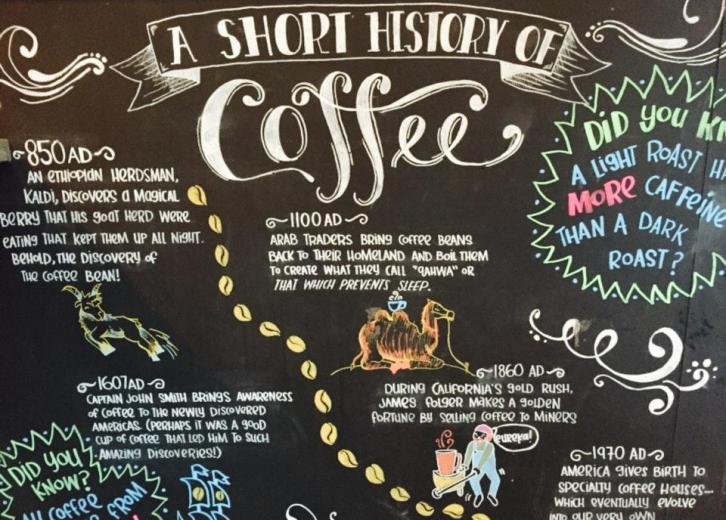 A SHORT HISTORY OF
Coffee
850 AD
AN ETHIOPIAN HERDSMAN,
KALDI, DISCOVERS A MAGICAL
BERRY THAT HIS GOAT HERD WERE
EATING THAT KEPT THEM UP ALL NIGHT.
BEHOLD, THE DISCOVERY OF
THE COFFEE BEAN!
1100 AD
ARAB TRADERS BRING COFFEE BEANS
BACK TO THEIR HOMELAND AND BOIL THEM
TO CREATE WHAT THEY CALL "QAHWA" OR
THAT WHICH PREVENTS SLEEP.
DID YOU
A LIGHT ROAST
MORE CAFFEINE
THAN A DARK
ROAST?
1607 AD
CAPTAIN JOHN SMITH BRINGS AWARENESS
OF COFFEE TO THE NEWLY DISCOVERED
AMERICAS. (PERHAPS IT WAS A GOOD
CUP OF COFFEE THAT LED HIM TO SUCH
AMAZING DISCOVERIES!)
1860 AD
DURING CALIFORNIA'S GOLD RUSH,
JAMES FOLGER MAKES A GOLDEN
FORTUNE BY SELLING COFFEE TO MINERS
eureka!
DID YOU
KNOW?
COFFEE
FROM
1970 AD
AMERICA GIVES BIRTH TO
SPECIALTY COFFEE HOUSES...
WHICH EVENTUALLY EVOLVE
INTO OUR VERY OWN